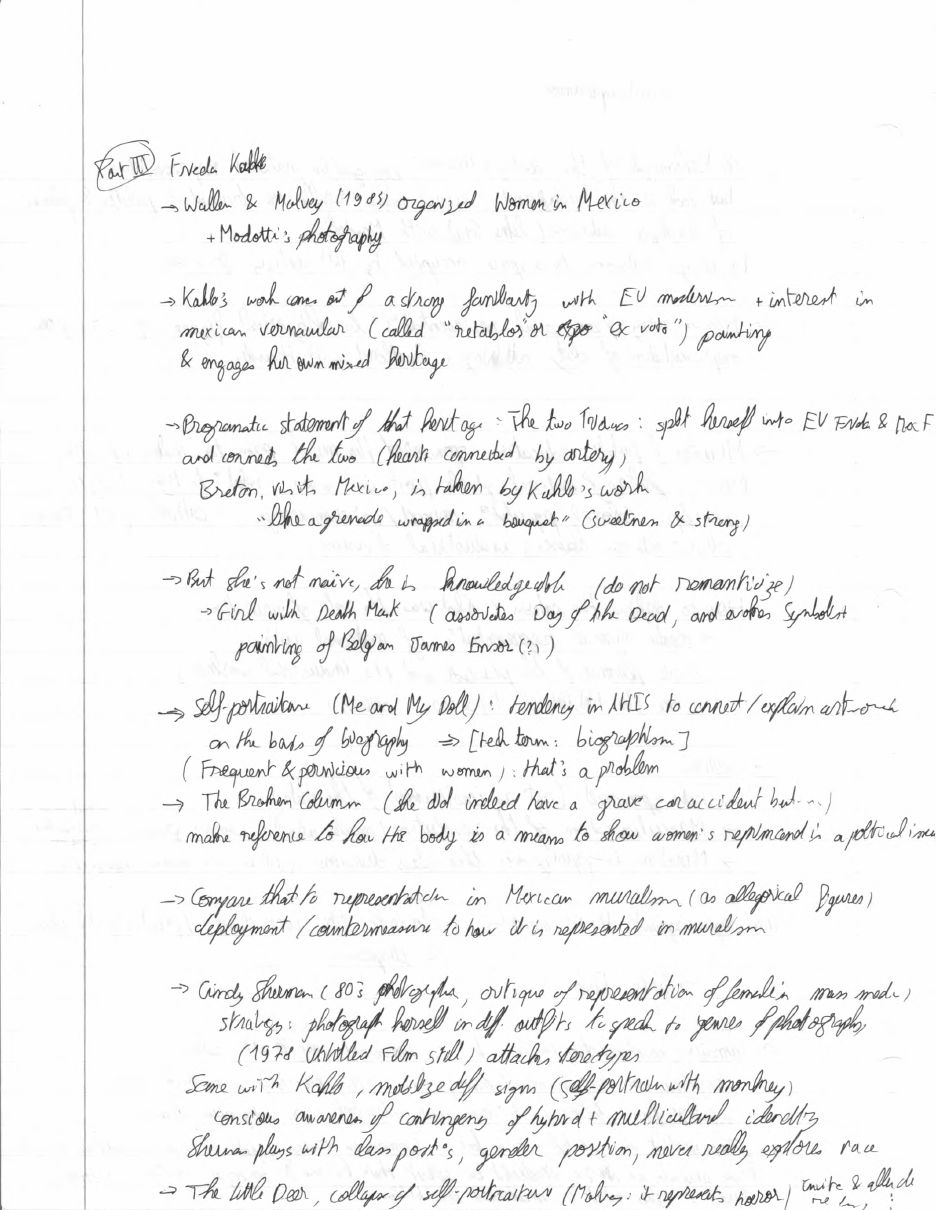 Part III Frieda Kahlo
→ Wallen & Malvey (1983) organized Women in Mexico
+ Modotti's photography
→ Kahlo's work comes out of a strong familiarity with EU modernism + interest in
mexican vernacular (called "retablos" or "ex voto") painting
& engages her own mixed heritage
→ Programatic statement of that heritage: The two Fridas: split herself into EU Frida & Mex F
and connects the two (hearts connected by artery)
Breton, visits Mexico, is taken by Kahlo's work
"like a grenade wrapped in a bouquet" (sweetness & strong)
→ But she's not naive, she is knowledgeable (do not romanticize)
→ Girl with Death Mask (associates Day of the Dead, and evokes Symbolist
painting of Belgian James Ensor (?))
→ Self-portraiture (Me and My Doll): tendency in AHIS to connect/explain art-work
on the basis of biography ⇒ [tech term: biographism]
(Frequent & pernicious with women): that's a problem
→ The Broken Column (she did indeed have a grave car accident but...)
make reference to how the body is a means to show women's reprimand is a political issue
→ Compare that to representation in Mexican muralism (as allegorical figures)
deployment/countermeasure to how it is represented in muralism
→ Cindy Sherman (80's photographer, critique of representation of female in mass media)
strategy: photograph herself in diff. outfits to speak to genres of photography
(1978 Untitled Film still) attacks stereotypes
Same with Kahlo, mobilize diff signs (self-portrait with monkey)
conscious awareness of contingency of hybrid + multicultural identity
Sherman plays with class posit°s, gender position, never really explores race
→ The little Deer, collapse of self-portraiture (Malvey: it represents horror) invite &